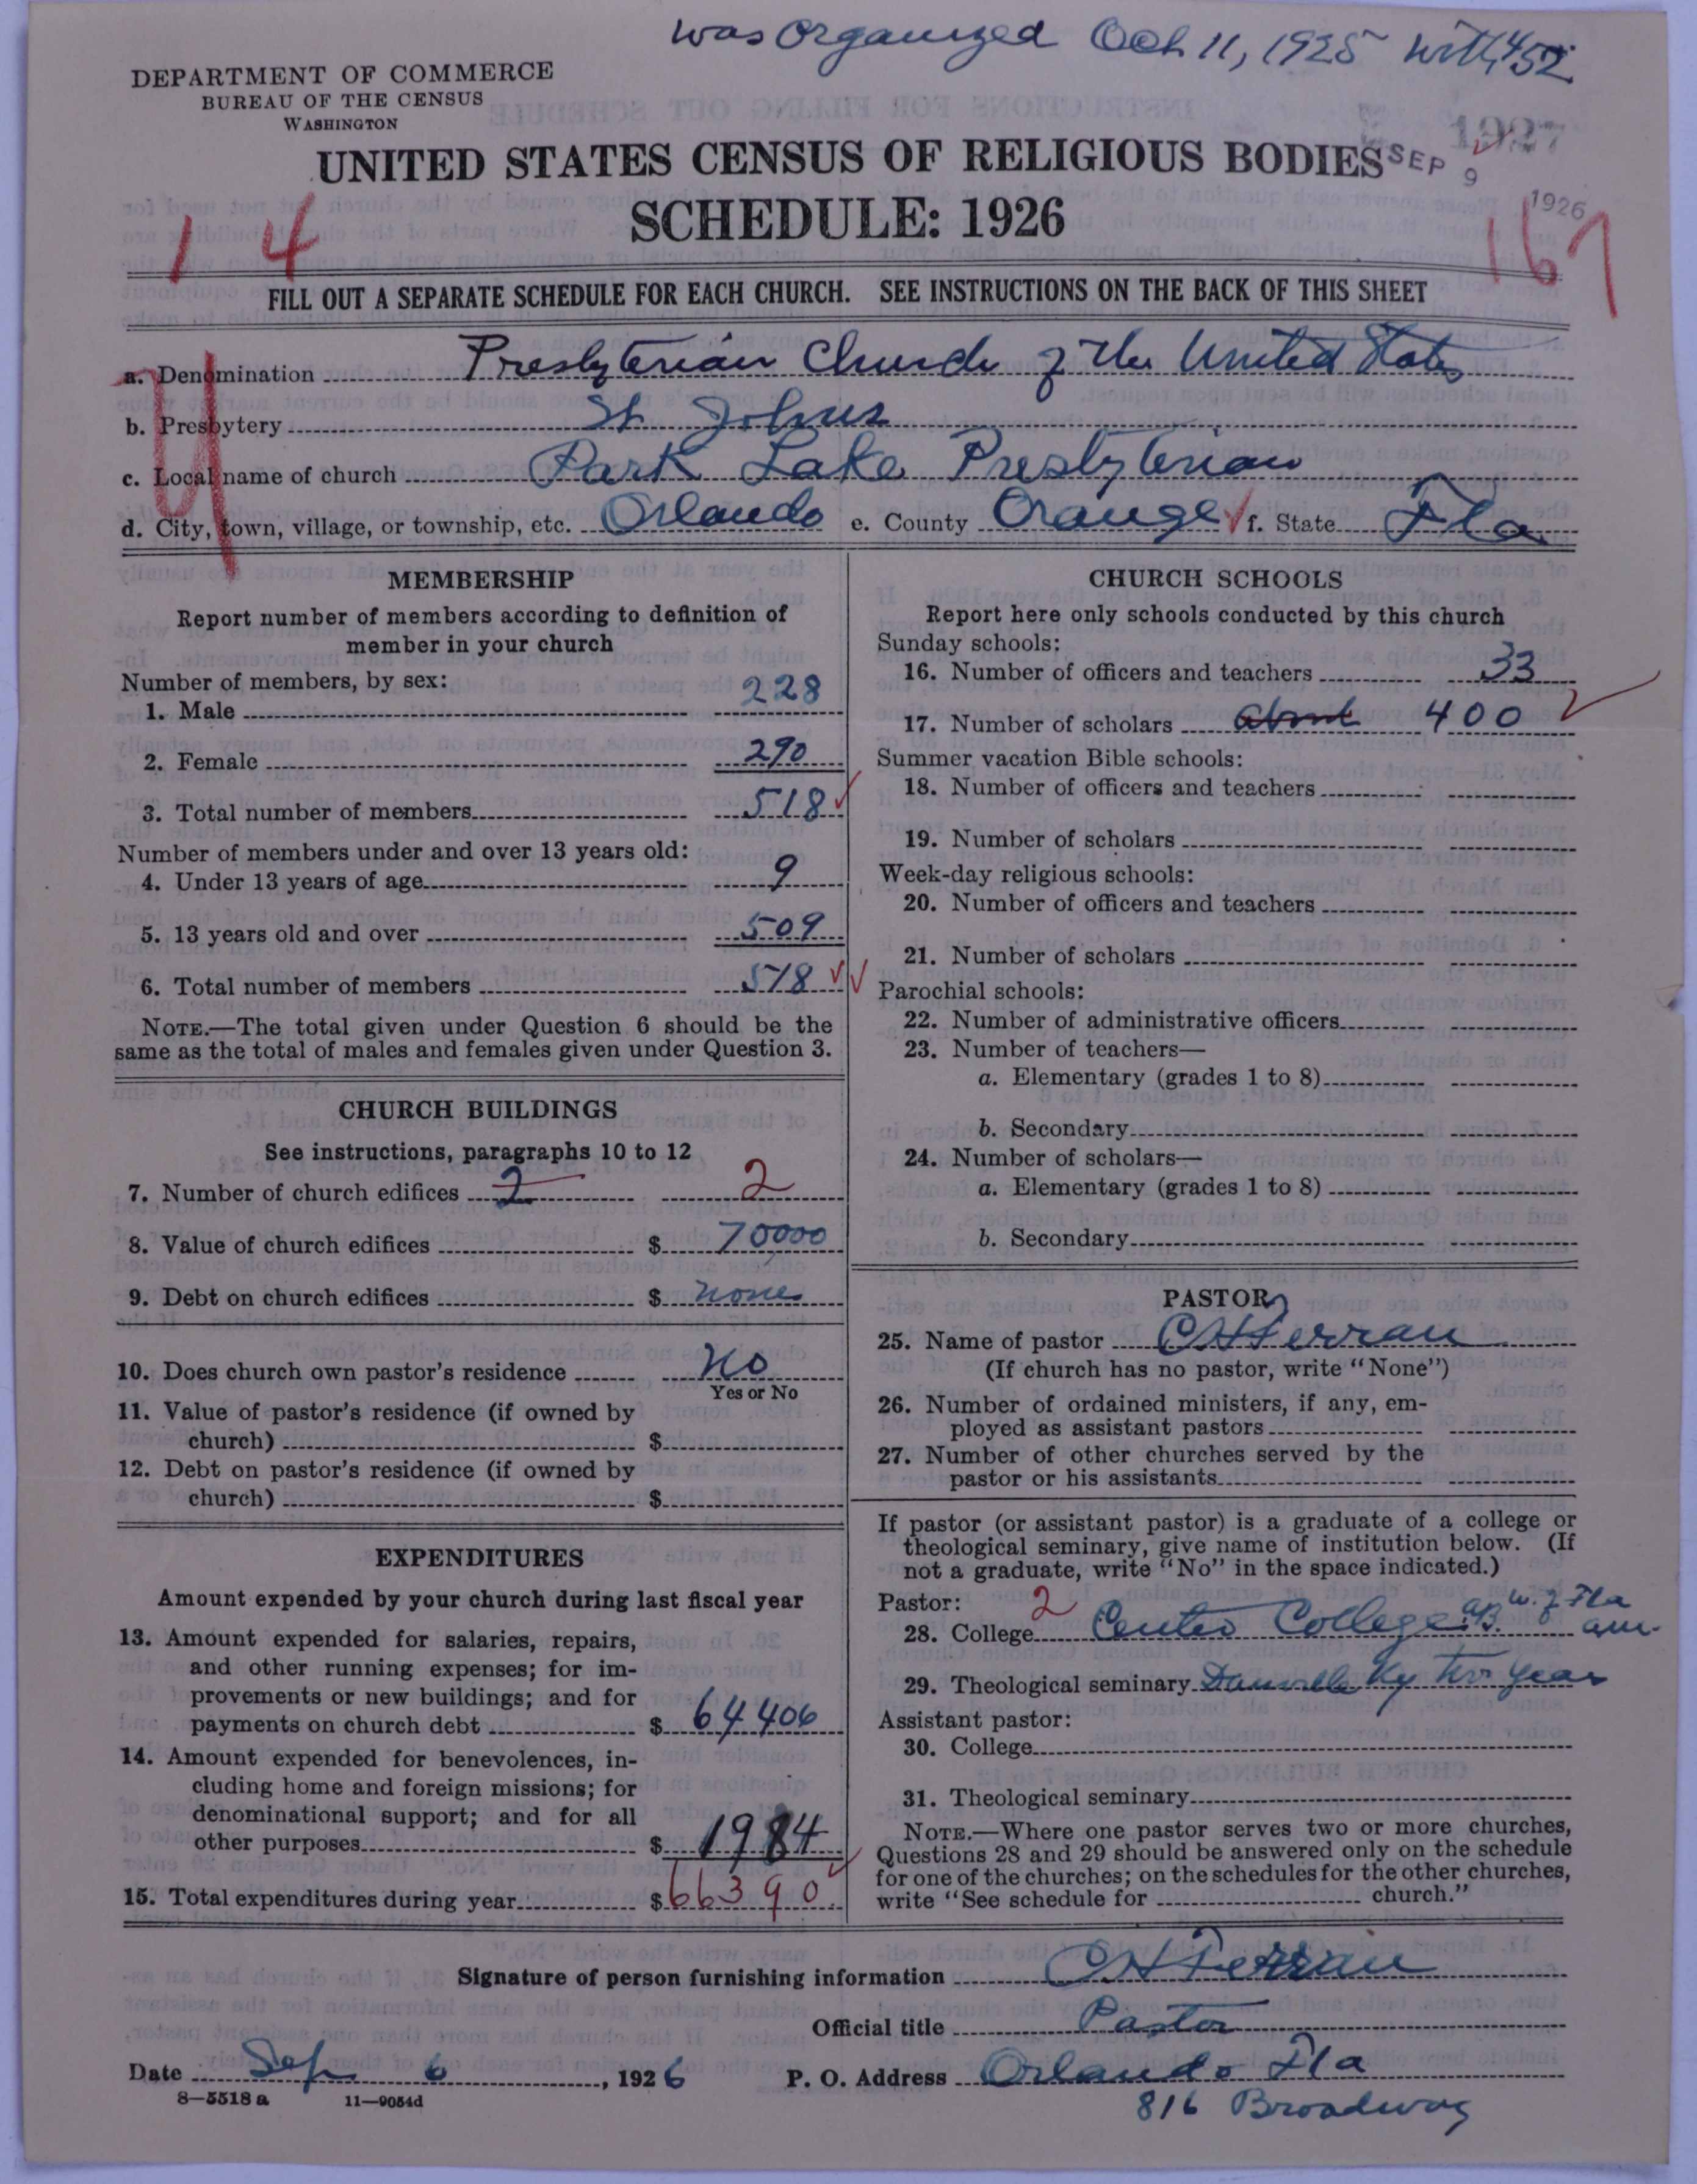 was organized Oct 11, 1925 with 452
DEPARTMENT OF COMMERCE
BUREAU OF THE CENSUS
WASHINGTON
1927
UNITED STATES CENSUS OF RELIGIOUS BODIES
SEP 9 1926
SCHEDULE: 1926
14
167
FILL OUT A SEPARATE SCHEDULE FOR EACH CHURCH. SEE INSTRUCTIONS ON THE BACK OF THIS SHEET
a. Denomination Presbyterian Church of the United States
b. Presbytery St Johns
c. Local name of church Park Lake Presbyterian
d. City, town, village, or township, etc. Orlando e. County Orange f. State Fla
MEMBERSHIP
Report number of members according to definition of
member in your church
Number of members, by sex:
1. Male 228
2. Female 290
3. Total number of members 518
Number of members under and over 13 years old:
4. Under 13 years of age 9
5. 13 years old and over 509
6. Total number of members 518
NOTE.—The total given under Question 6 should be the
same as the total of males and females given under Question 3.
CHURCH BUILDINGS
See instructions, paragraphs 10 to 12
7. Number of church edifices 2 2
8. Value of church edifices $ 70000
9. Debt on church edifices $ none
10. Does church own pastor's residence No
Yes or No
11. Value of pastor's residence (if owned by
church) $
12. Debt on pastor's residence (if owned by
church) $
EXPENDITURES
Amount expended by your church during last fiscal year
13. Amount expended for salaries, repairs,
and other running expenses; for im-
provements or new buildings; and for
payments on church debt $ 64406
14. Amount expended for benevolences, in-
cluding home and foreign missions; for
denominational support; and for all
other purposes $ 1984
15. Total expenditures during year $ 66390
CHURCH SCHOOLS
Report here only schools conducted by this church
Sunday schools:
16. Number of officers and teachers 33
17. Number of scholars about 400
Summer vacation Bible schools:
18. Number of officers and teachers
19. Number of scholars
Week-day religious schools:
20. Number of officers and teachers
21. Number of scholars
Parochial schools:
22. Number of administrative officers
23. Number of teachers—
a. Elementary (grades 1 to 8)
b. Secondary
24. Number of scholars—
a. Elementary (grades 1 to 8)
b. Secondary
PASTOR
25. Name of pastor C H Ferran
(If church has no pastor, write "None")
26. Number of ordained ministers, if any, em-
ployed as assistant pastors
27. Number of other churches served by the
pastor or his assistants
If pastor (or assistant pastor) is a graduate of a college or
theological seminary, give name of institution below. (If
not a graduate, write "No" in the space indicated.)
Pastor: 2
28. College Centre College AB. Fla
29. Theological seminary Danville Ky two year
Assistant pastor:
30. College
31. Theological seminary
NOTE.—Where one pastor serves two or more churches,
Questions 28 and 29 should be answered only on the schedule
for one of the churches; on the schedules for the other churches,
write "See schedule for church."
Signature of person furnishing information C H Ferran
Official title Pastor
Date Sep 6, 1926 P. O. Address Orlando Fla
8—5518 a 11—9054d
816 Broadway